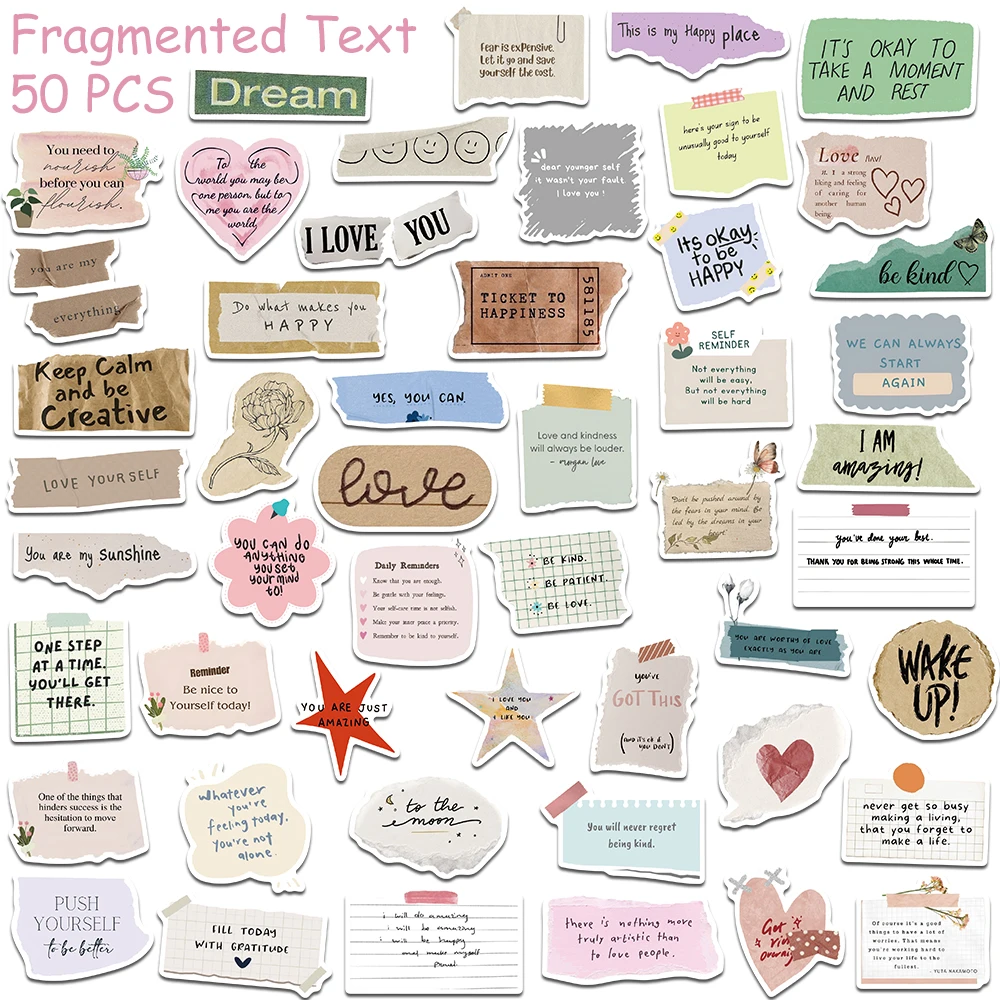 Fragmented Text
50 PCS
Dream
Fear is expensive.
Let it go and save
yourself the cost.
This is my Happy place
IT'S OKAY TO
TAKE A MOMENT
AND REST
You need to
nourish
before you can
flourish.
To the
world you may be
one person, but to
me you are the
world.
dear younger self
it wasn't your fault
I love you!
here's your sign to be
unusually good to yourself
today
Love
n. 1 a strong
liking and feeling
of caring for
another human
being.
I LOVE YOU
you are my
everything
Its okay
to be
HAPPY
be kind
Do what makes you
HAPPY
ADMIT ONE
TICKET TO
HAPPINESS
581185
SELF
REMINDER
Not everything
will be easy,
But not everything
will be hard
WE CAN ALWAYS
START
AGAIN
Keep Calm
and be
Creative
YES, YOU CAN.
Love and kindness
will always be louder.
- morgan love
I AM
amazing!
LOVE YOURSELF
love
Don't be pushed around by
the fears in your mind. Be
led by the dreams in your
heart.
you've done your best.
THANK YOU FOR BEING STRONG THIS WHOLE TIME.
You are my sunshine
YOU CAN DO
ANYTHING
YOU SET
YOUR MIND
TO!
Daily Reminders
Know that you are enough.
Be gentle with your feelings.
Your self-care time is not selfish.
Make your inner peace a priority.
Remember to be kind to yourself.
BE KIND.
BE PATIENT.
BE LOVE.
ONE STEP
AT A TIME.
YOU'LL GET
THERE.
Reminder
Be nice to
Yourself today!
YOU ARE JUST
AMAZING
I LOVE YOU
AND
I LIKE YOU
you've
GOT THIS
(AND ITS OK IF
YOU DON'T)
YOU ARE WORTHY OF LOVE
EXACTLY AS YOU ARE
WAKE
UP!
One of the things that
hinders success is the
hesitation to move
forward.
Whatever
you're
feeling today,
you're not
alone.
to the
moon
You will never regret
being kind.
never get so busy
making a living,
that you forget to
make a life.
PUSH
YOURSELF
to be better
FILL TODAY
WITH GRATITUDE
i will do amazing
i will be amazing
i will be happy
and make myself
proud.
there is nothing more
truly artistic than
to love people.
Get
Of course it's a good
things to have a lot of
worries. That means
you're working hard to
live your life to the
fullest.
- YUTA NAKAMOTO